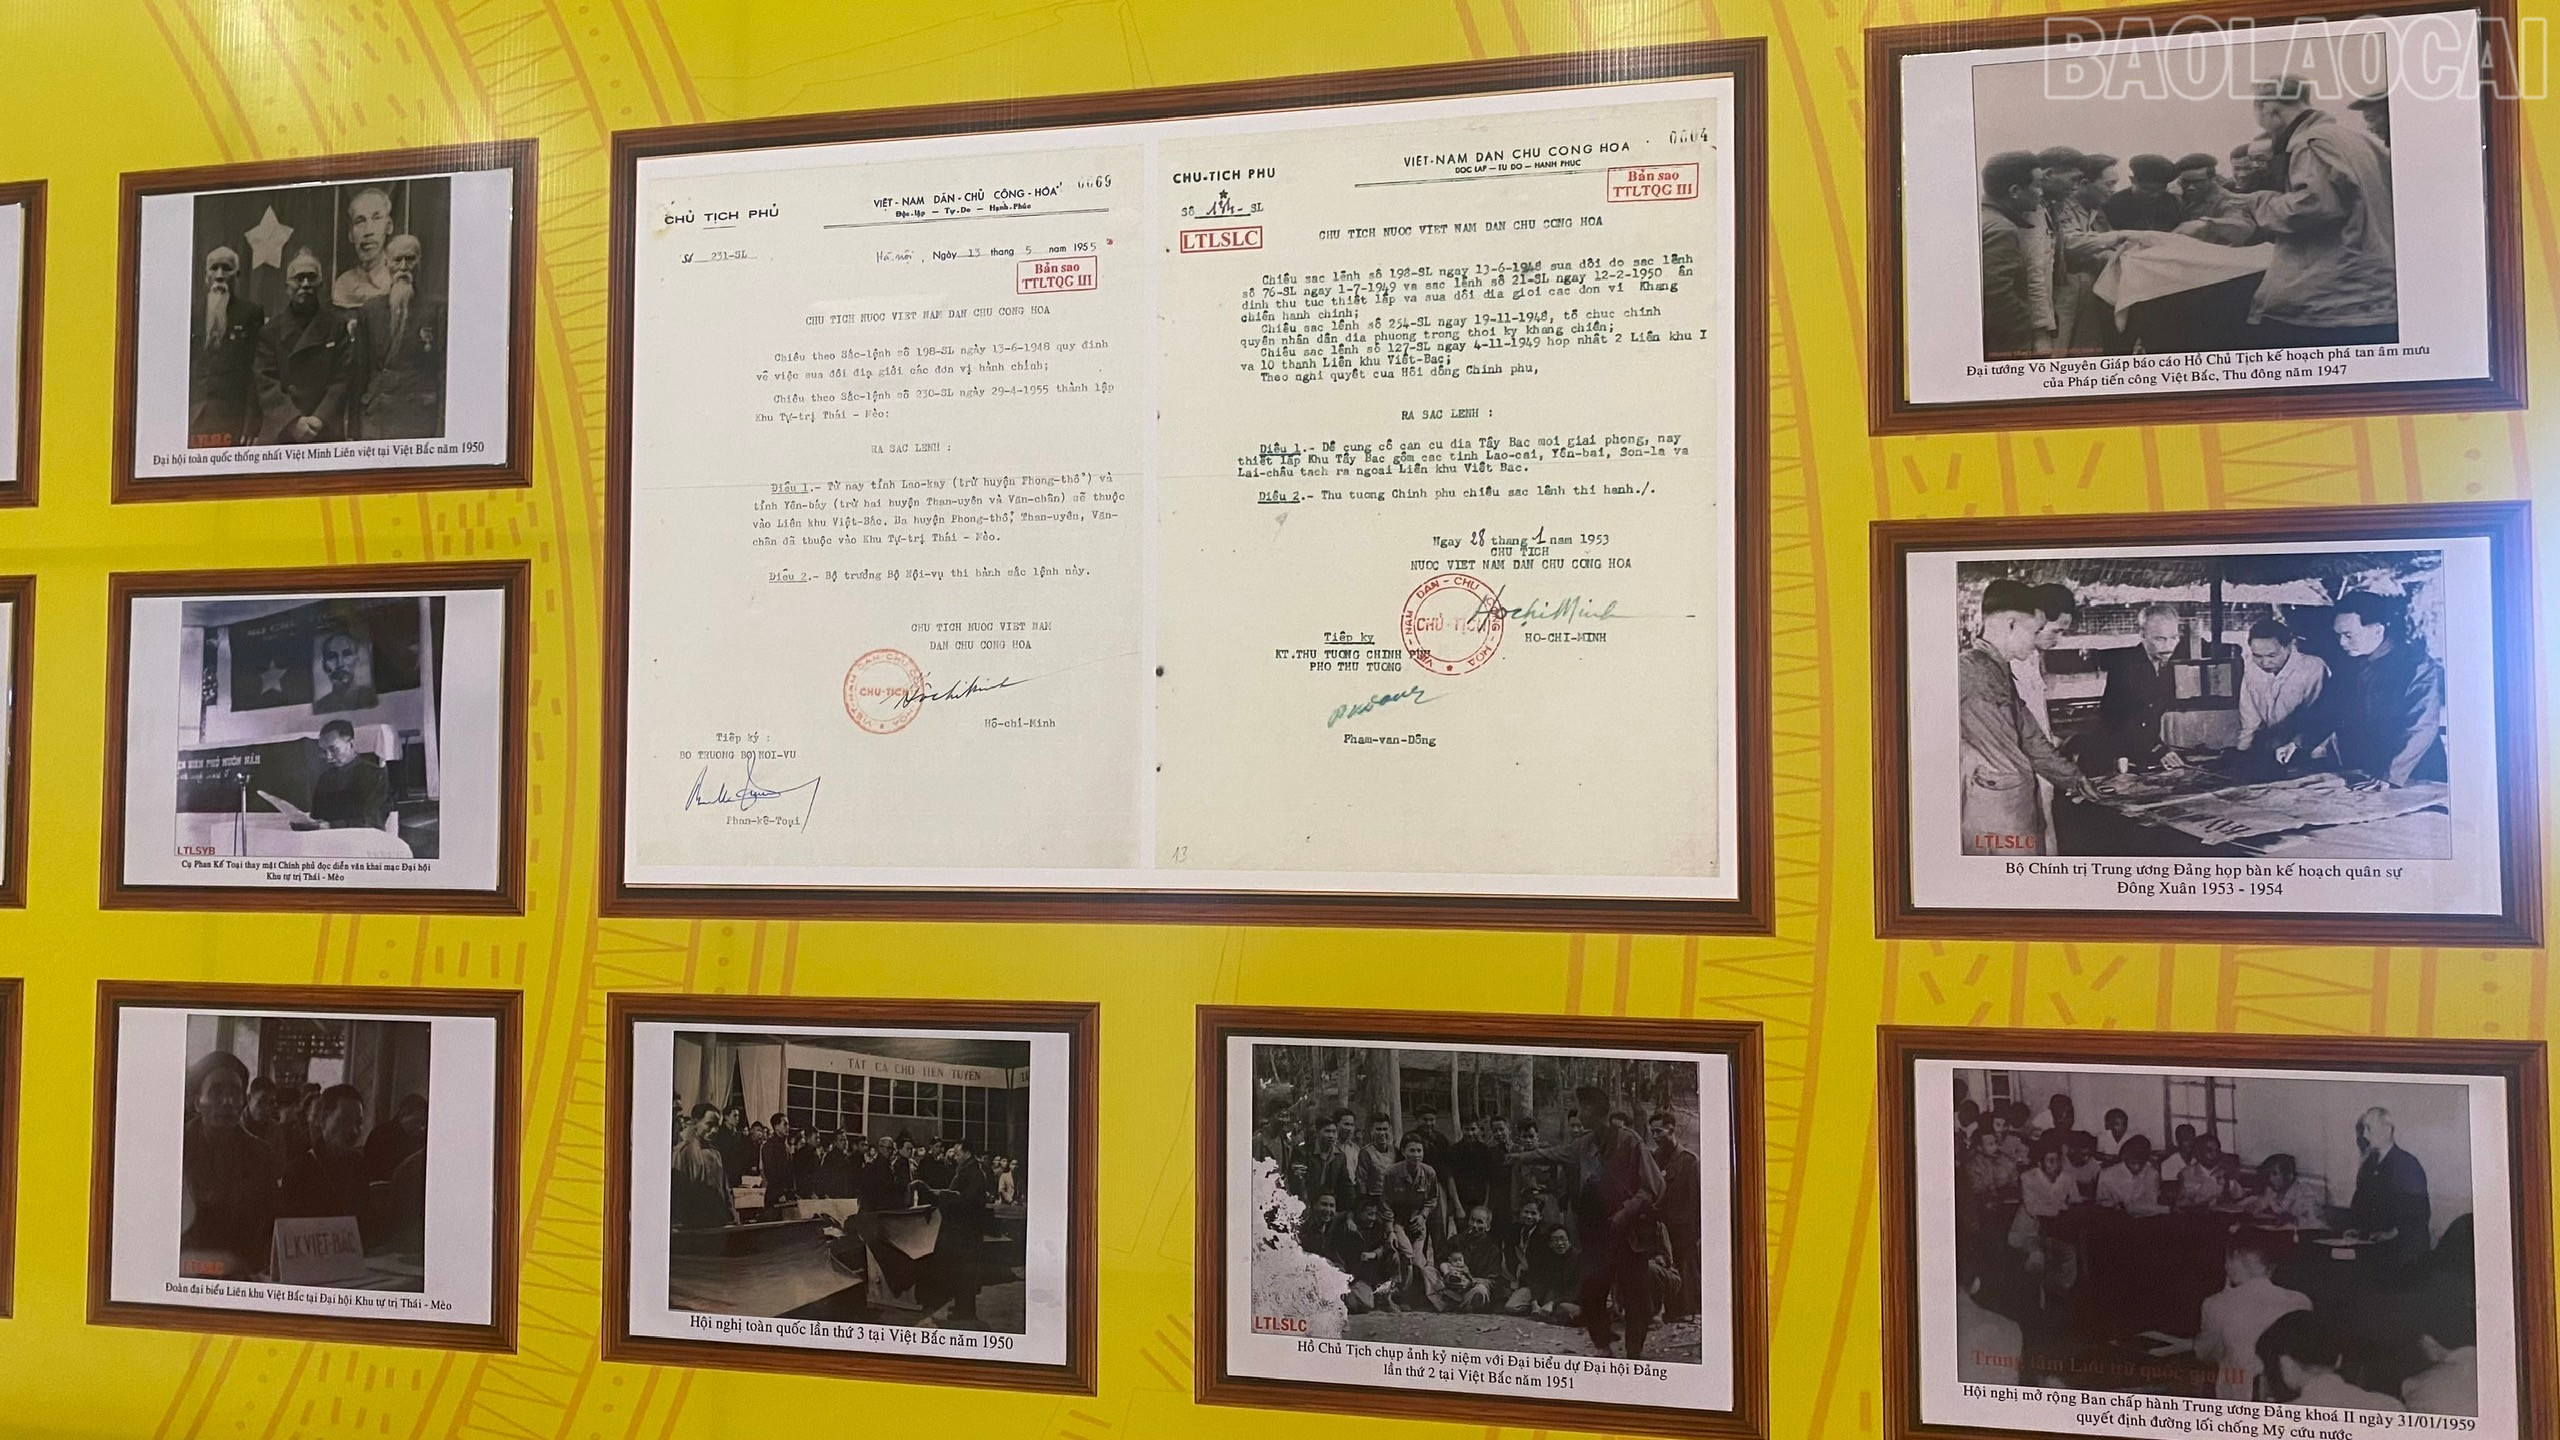 BAOLAOCAI
LTLSLC
Đại hội toàn quốc thống nhất Việt Minh Liên việt tại Việt Bắc năm 1950
LTLSYB
Cụ Phan Kế Toại thay mặt Chính phủ đọc diễn văn khai mạc Đại hội
Khu tự trị Thái - Mèo
L.K.VIỆT-BẮC
Đoàn đại biểu Liên khu Việt Bắc tại Đại hội Khu tự trị Thái - Mèo
CHỦ TỊCH PHỦ
VIỆT-NAM DÂN-CHỦ CỘNG-HÒA
0069
Độc-lập — Tự-Do — Hạnh-Phúc
Số 231-SL
Hà nội, Ngày 13 tháng 5 năm 1955
Bản sao
TTLTQG III
CHU TICH NUOC VIET NAM DAN CHU CONG HOA
Chiếu theo Sắc-lệnh số 198-SL ngày 13-6-1948 quy định
về việc sửa đổi địa giới các đơn vị hành chính;
Chiếu theo Sắc-lệnh số 230-SL ngày 29-4-1955 thành lập
Khu Tự-trị Thái - Mèo;
RA SAC LENH :
Điều 1.- Từ nay tỉnh Lao-kay (trừ huyện Phong-thổ) và
tỉnh Yên-báy (trừ hai huyện Than-uyên và Văn-chấn) sẽ thuộc
vào Liên khu Việt-Bắc. Ba huyện Phong-thổ, Than-uyên, Văn-
chấn đã thuộc vào Khu Tự-trị Thái - Mèo.
Điều 2.- Bộ trưởng Bộ Nội-vụ thi hành sắc lệnh này.
CHU TICH NUOC VIET NAM
DAN CHU CONG HOA
CHU-TICH
Hồ-chí-Minh
Tiếp ký :
BO TRUONG BO NOI-VU
Phan-kế-Toại
CHU-TICH PHU
VIÊT-NAM DAN CHU CONG HOA
0604
DOC LAP — TU DO — HANH PHUC
Bản sao
TTLTQG III
Số 134- SL
LTLSLC
CHU TICH NUOC VIET NAM DAN CHU CONG HOA
Chiêu sac lênh số 198-SL ngay 13-6-1948 sua dổi do sac lênh
số 76-SL ngay 1-7-1949 va sac lênh số 21-SL ngay 12-2-1950 ân
dinh thu tuc thiêt lâp va sua dổi dia gioi cac don vi Khang
chiên hanh chinh;
Chiêu sac lênh số 254-SL ngay 19-11-1948, tổ chuc chinh
quyên nhân dân dia phuong trong thoi ky khang chiên;
Chiêu sac lênh số 127-SL ngay 4-11-1949 hop nhât 2 Liên khu I
va 10 thanh Liên khu Viêt-Bac;
Theo nghi quyêt cua Hôi dông Chinh phu,
RA SAC LENH :
Diêu 1.- Dể cung cố can cu dia Tây Bac moi giai phong, nay
thiêt lâp Khu Tây Bac gôm cac tinh Lao-cai, Yên-bai, Son-la va
Lai-châu tach ra ngoai Liên khu Viêt Bac.
Diêu 2.- Thu tuong Chinh phu chiêu sac lênh thi hanh./.
Ngay 28 thang 1 nam 1953
CHU TICH
NUOC VIET NAM DAN CHU CONG HOA
CHỦ-TỊCH
HochiMinh
HO-CHI-MINH
Tiêp ky
KT.THU TUONG CHINH PHU
PHO THU TUONG
Pham-van-Dông
13
TẤT CẢ CHO TIỀN TUYẾN
Hội nghị toàn quốc lần thứ 3 tại Việt Bắc năm 1950
LTLSLC
Hồ Chủ Tịch chụp ảnh kỷ niệm với Đại biểu dự Đại hội Đảng
lần thứ 2 tại Việt Bắc năm 1951
Đại tướng Võ Nguyên Giáp báo cáo Hồ Chủ Tịch kế hoạch phá tan âm mưu
của Pháp tiến công Việt Bắc, Thu đông năm 1947
LTLSLC
Bộ Chính trị Trung ương Đảng họp bàn kế hoạch quân sự
Đông Xuân 1953 - 1954
Trung tâm Lưu trữ quốc gia III
Hội nghị mở rộng Ban chấp hành Trung ương Đảng khoá II ngày 31/01/1959
quyết định đường lối chống Mỹ cứu nước